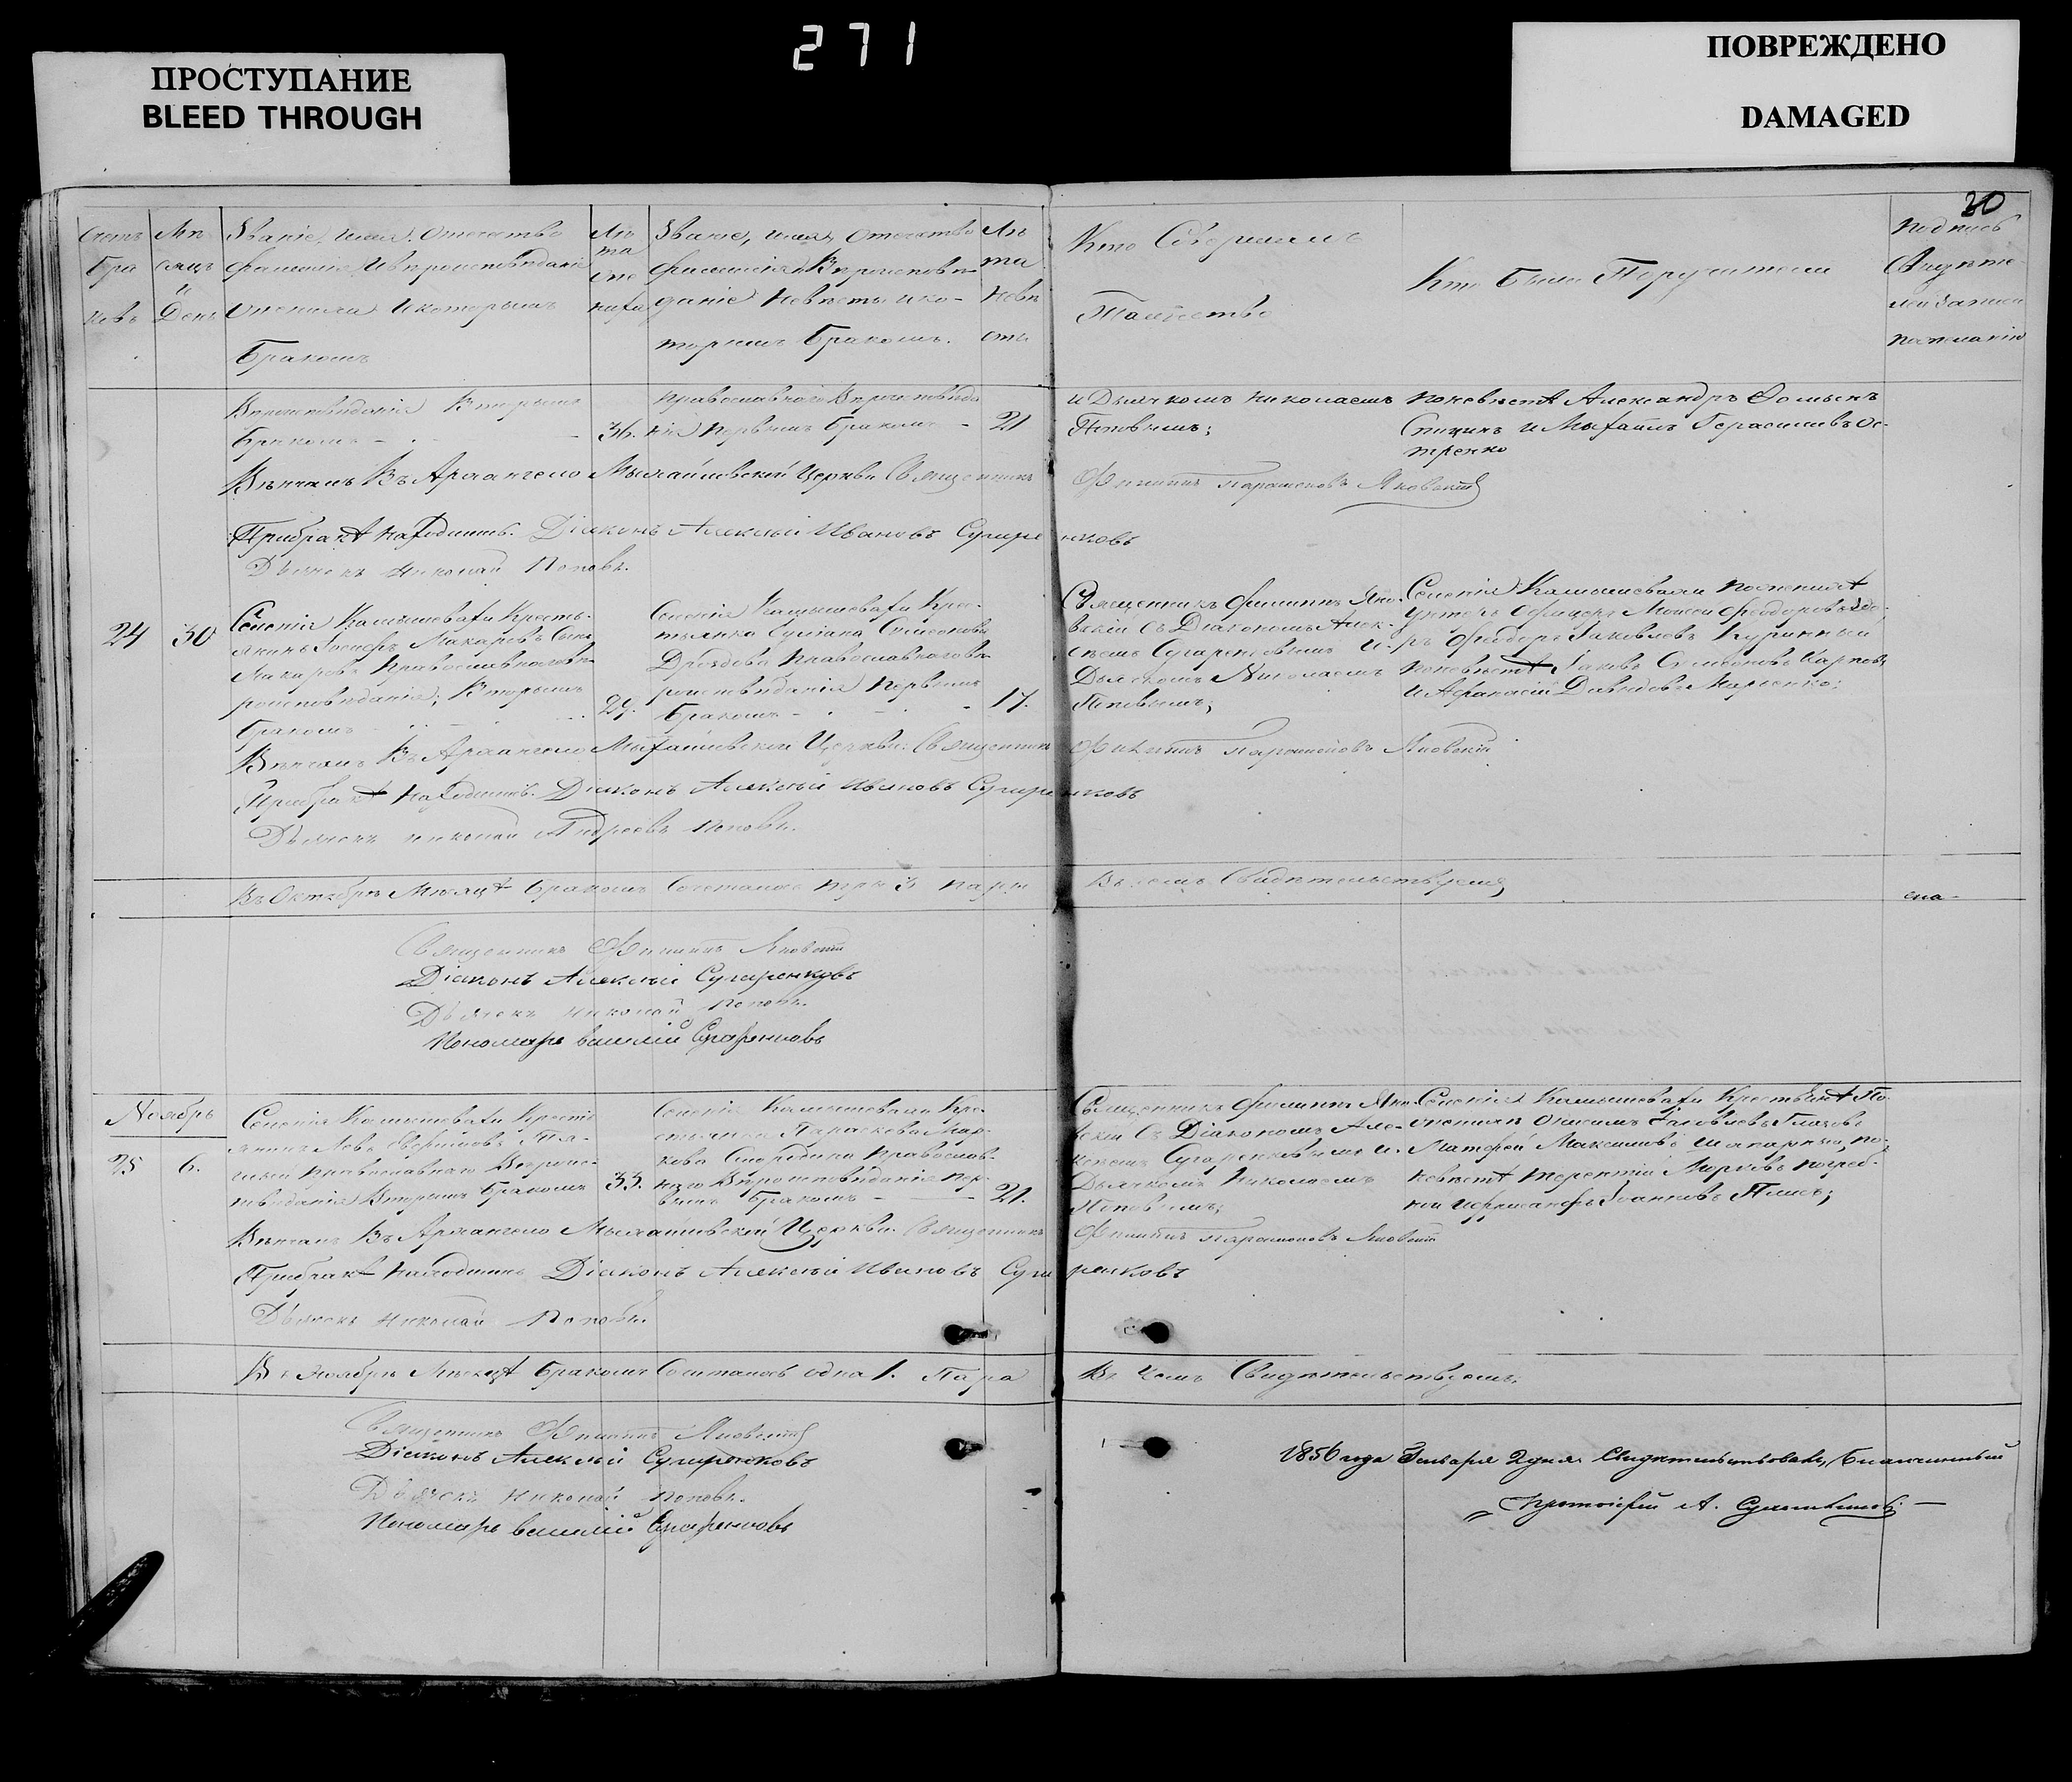 271
ПРОСТУПАНИЕ
BLEED THROUGH
ПОВРЕЖДЕНО
DAMAGED
30
Счетъ бра ковъ
Мѣ сяцъ и День
Званіе, имя, Отечество
Фамилія и вѣроисповѣданіе
Жениха и которымъ
Бракомъ
Лѣ та Же ниха
Званіе, имя, Отечество
Фамилія и Вѣроисповѣ
даніе Невѣсты и ко-
торымъ Бракомъ.
Лѣ та Невѣ сты
Кто Совершалъ
Таинство
Кто были Поручители
Подпись
Свидѣте
лей записи
по желанію
Вѣроисповѣданія Вторымъ
Бракомъ - 36.
Православнаго Вѣроисповѣда
нія Первымъ Бракомъ - 21
и Дьячкомъ Николаемъ
Поповымъ;
По невѣстѣ Александръ
и Михаилъ Герасимовъ Ос-
тренко
Вѣнчалъ Въ Архангело Михайловской Церкви Священникъ Филиппъ Парамоновъ Яновскій
При бракѣ находились. Діаконъ Алексѣй Ивановъ Сухаренковъ
Дьячекъ Николай Поповъ.
24 30
Селенія Камышевахи Кресть-
янинъ Макаровъ Сынъ
Макаровъ Православнаго вѣ
роисповѣданія; Вторымъ
бракомъ 29.
Селенія Камышевахи Крес-
тьянка Симеонова
Дроздова Православнаго вѣ
роисповѣданія Первымъ
Бракомъ - 17.
Священникъ Филиппъ Яно-
вскій Съ Діакономъ Алек-
сѣемъ Сухаренковымъ и
Дьячкомъ Николаемъ
Поповымъ;
Селенія Камышевахи По женихѣ
Унтеръ Офицеръ Моисей Феодоровъ
Феодоръ Іаковлевъ
По невѣстѣ Іаковъ Симеоновъ Карповъ
и Афанасій Давидовъ Марченко;
Вѣнчалъ Въ Архангело Михайловской Церкви: Священникъ Филиппъ Парамоновъ Яновскій
При бракѣ находились. Діаконъ Алексѣй Ивановъ Сухаренковъ
Дьячекъ Николай Андреевъ Поповъ.
Въ Октябрѣ Мѣсяцѣ бракомъ Сочеталось три 3 пары Въ чемъ Свидѣтельствуемъ
Священникъ Филиппъ Яновскій
Діаконъ Алексѣй Сухаренковъ
Дьячекъ Николай Поповъ.
Пономарь Василій Сухаренковъ
Ноябрь
25 6.
Селенія Камышевахи Кресть
янинъ Левъ
Православнаго Вѣроис-
повѣданія Вторымъ бракомъ 33.
Селенія Камышевахи Кре-
стьянка Параскева Мар-
кова Православ-
наго Вѣроисповѣданія пер-
вымъ бракомъ - 21.
Священникъ Филиппъ Яно
вскій Съ Діакономъ Але-
ксѣемъ Сухаренковымъ и
Дьячкомъ Николаемъ
Поповымъ;
Селенія Камышевахи Крестьянѣ По
женихѣ Онисимъ Іаковлевъ
Матфей Максимовъ по
невѣстѣ Терентій Марковъ
Іоанновъ
Вѣнчалъ Въ Архангело Михайловской Церкви. Священникъ Филиппъ Парамоновъ Яновскій
При бракѣ находились Діаконъ Алексѣй Ивановъ Сухаренковъ
Дьячекъ Николай Поповъ.
Въ Ноябрѣ Мѣсяцѣ бракомъ Сочеталось одна 1. Пара Въ чемъ Свидѣтельствуемъ:
Священникъ Филиппъ Яновскій
Діаконъ Алексѣй Сухаренковъ
Дьячекъ Николай Поповъ.
Пономарь Василій Сухаренковъ
1856 года Января 2 дня. Свидѣтельствовалъ, Благочинный
Протоіерей А.